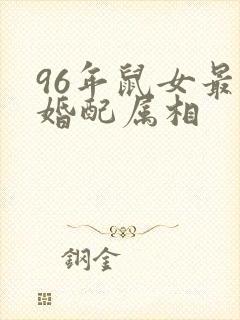 96年鼠女最
婚配属相
钢金